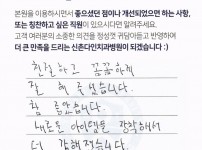 본원을 이용하시면서 좋으셨던 점이나 개선되었으면 하는 사항,
또는 칭찬하고 싶은 직원이 있으시다면 알려주세요.
고객 여러분의 소중한 의견을 정성껏 귀담아듣고 반영하여
더 큰 만족을 드리는 신촌다인치과병원이 되겠습니다 :)
친절하고 꼼꼼하게
잘 해 주셨습니다.
참 좋았습니다.
새로운 아이템을 장착해서
더 강해졌습니다.